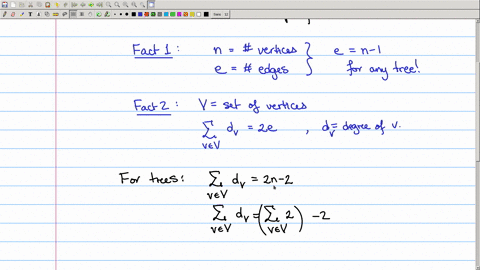 Fact 1: n = # vertices } e = n-1
e = # edges } for any tree!
Fact 2: V = set of vertices
∑ d_v = 2e , d_v = degree of v.
v∈V
For trees: ∑ d_v = 2n-2
v∈V
∑ d_v = (∑ 2) -2
v∈V v∈V